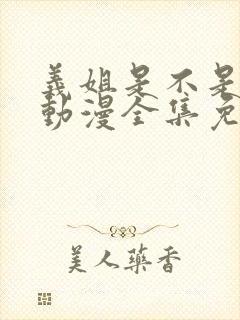 義姐是不是
動漫全集免
美人藥香